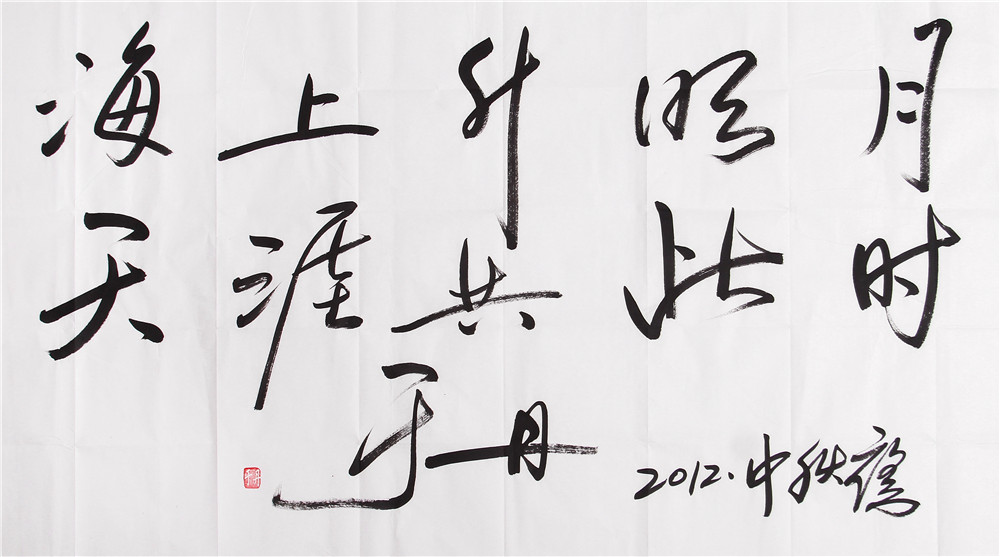 海上升明月
天涯共此时
于丹
2012.中秋